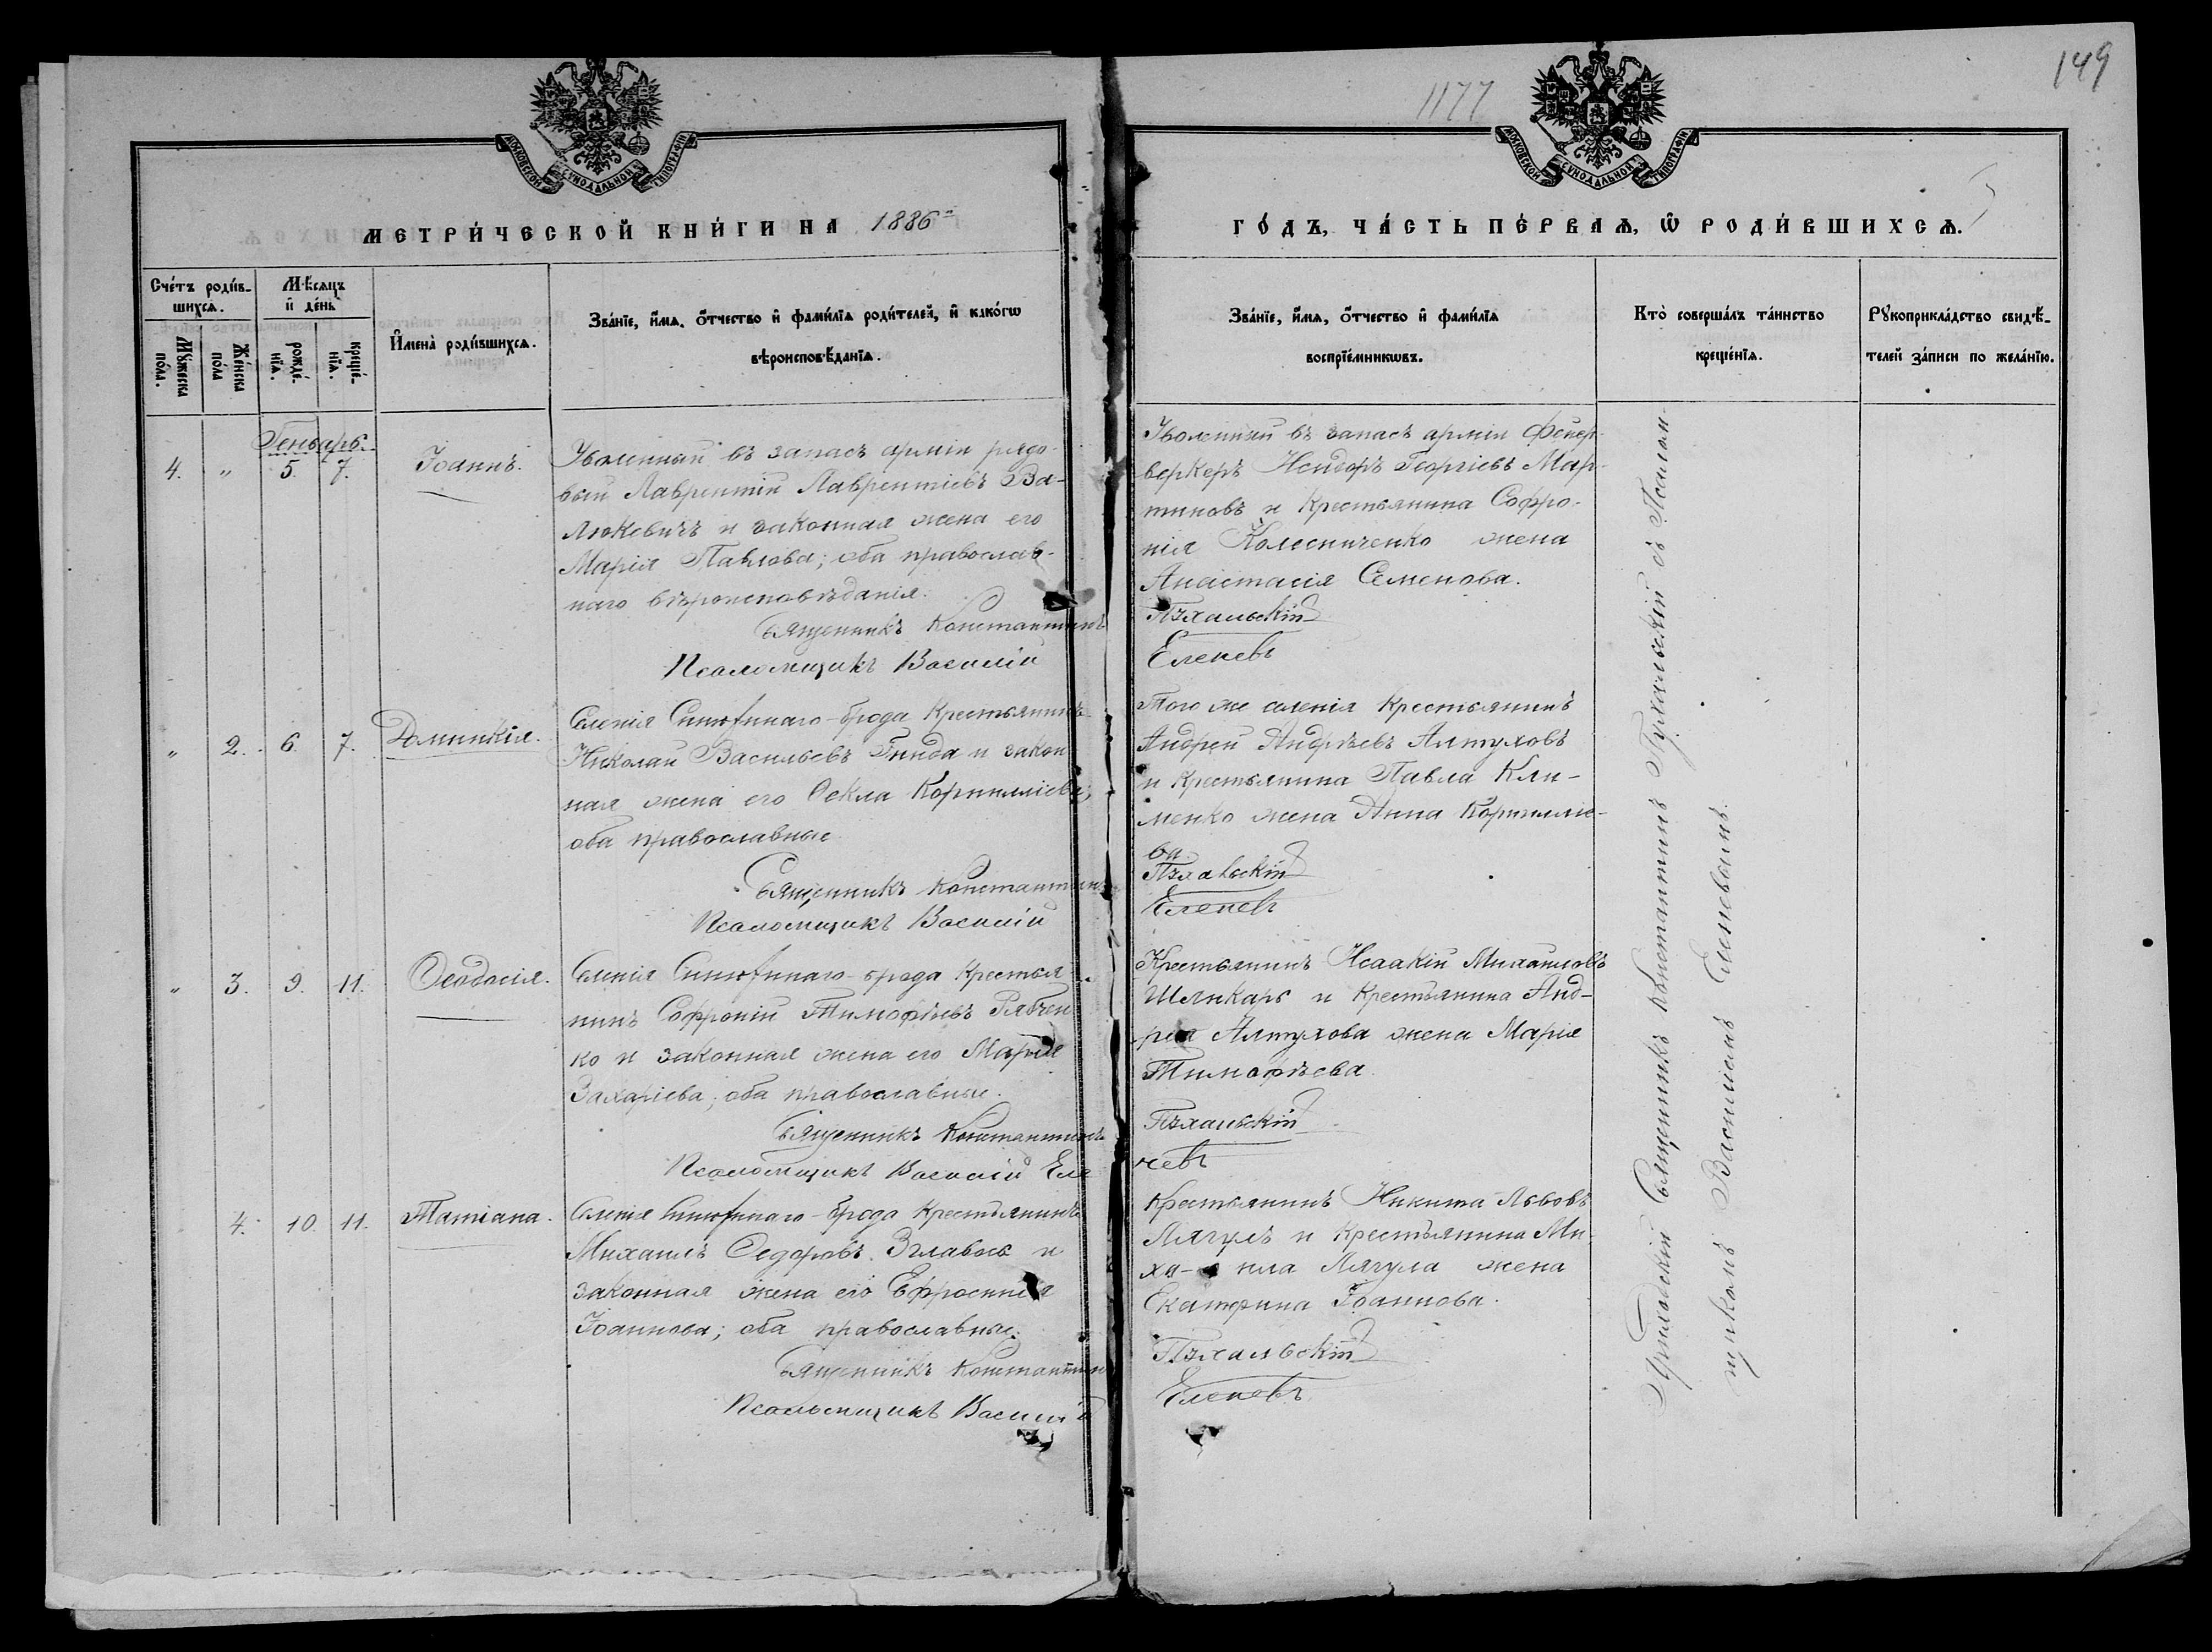 149
1177
МОСКОВСКОЙ СѴНОДАЛЬНОЙ ТИПОГРАФІИ
МОСКОВСКОЙ СѴНОДАЛЬНОЙ ТИПОГРАФІИ
МЕТРИ́ЧЕСКОЙ КНИ́ГИ НА 1886
ГО́ДЪ, ЧА́СТЬ ПЕ́РВАѦ, Ѡ҆ РОДИ́ВШИХСѦ.
Сче́тъ роди́в-
шихсѧ.
Мꙋ́жеска по́ла.
Же́нска по́ла
Мѣ́сѧцъ
и҆ де́нь
рожде́-
нїѧ.
креще́-
нїѧ.
И҆мена̀ роди́вшихсѧ.
Зва́нїе, и҆́мѧ, ѻ҆́тчество и҆ фами́лїѧ роди́телей, и҆ како́гѡ
вѣроисповѣ́данїѧ.
Зва́нїе, и҆́мѧ, ѻ҆́тчество и҆ фами́лїѧ
воспрїе́мникѡвъ.
Кто̀ соверша́лъ та́инство
креще́нїѧ.
Рꙋкоприкла́дство свидѣ́-
телей за́писи по жела́нїю.
Генварь.
4. " 5. 7. Іоаннъ.
Уволенный въ запасъ арміи рядо-
вый Лаврентій Лаврентіевъ Ва-
люкевичъ и законная жена его
Марія Павлова; оба православ-
наго вѣроисповѣданія.
Священникъ Константинъ
Псаломщикъ Василій
Уволенный въ запасъ арміи Фейер-
веркеръ Исидоръ Георгіевъ Мар-
тиновъ и Крестьянина Софро-
нія Колесниченко жена
Анастасія Семенова.
Пухальскій
Еленевъ
" 2. 6. 7. Домникія.
Селенія Синюхинаго-брода Крестьянинъ
Николай Васильевъ Гнида и закон
ная жена его Ѳекла Корнилліева,
оба православные
Священникъ Константинъ
Псаломщикъ Василій
Того же селенія Крестьянинъ
Андрей Андрѣевъ Алтуховъ
и Крестьянина Павла Кли-
менко жена Анна Корниліе-
ва.
Пухальскій
Еленевъ
" 3. 9. 11. Ѳеодосія.
Селенія Синюхинаго-брода Крестья
нинъ Софроній Тимофѣевъ Рябчен
ко и законная жена его Марія
Захаріева; оба православные.
Священникъ Константинъ
Псаломщикъ Василій Еле
Крестьянинъ Исаакій Михаиловъ
Шлякаръ и Крестьянина Анд-
рея Алтухова жена Марія
Тимофѣева.
Пухальскій
невъ
4. 10. 11. Татіана.
Селенія Синюхинаго-брода Крестьянинъ
Михаилъ Ѳедоровъ и
законная жена его Ефросинія
Іоаннова; оба православные.
Священникъ Константинъ
Псаломщикъ Василій
Крестьянинъ Никита Львовъ
Лягулъ и Крестьянина Ми-
ха- ила Лягула жена
Екатерина Іоаннова.
Пухальскій
Еленевъ
Приходскій Священникъ Константинъ Пухальскій съ Псалом-
щикомъ Василіемъ Еленевымъ.